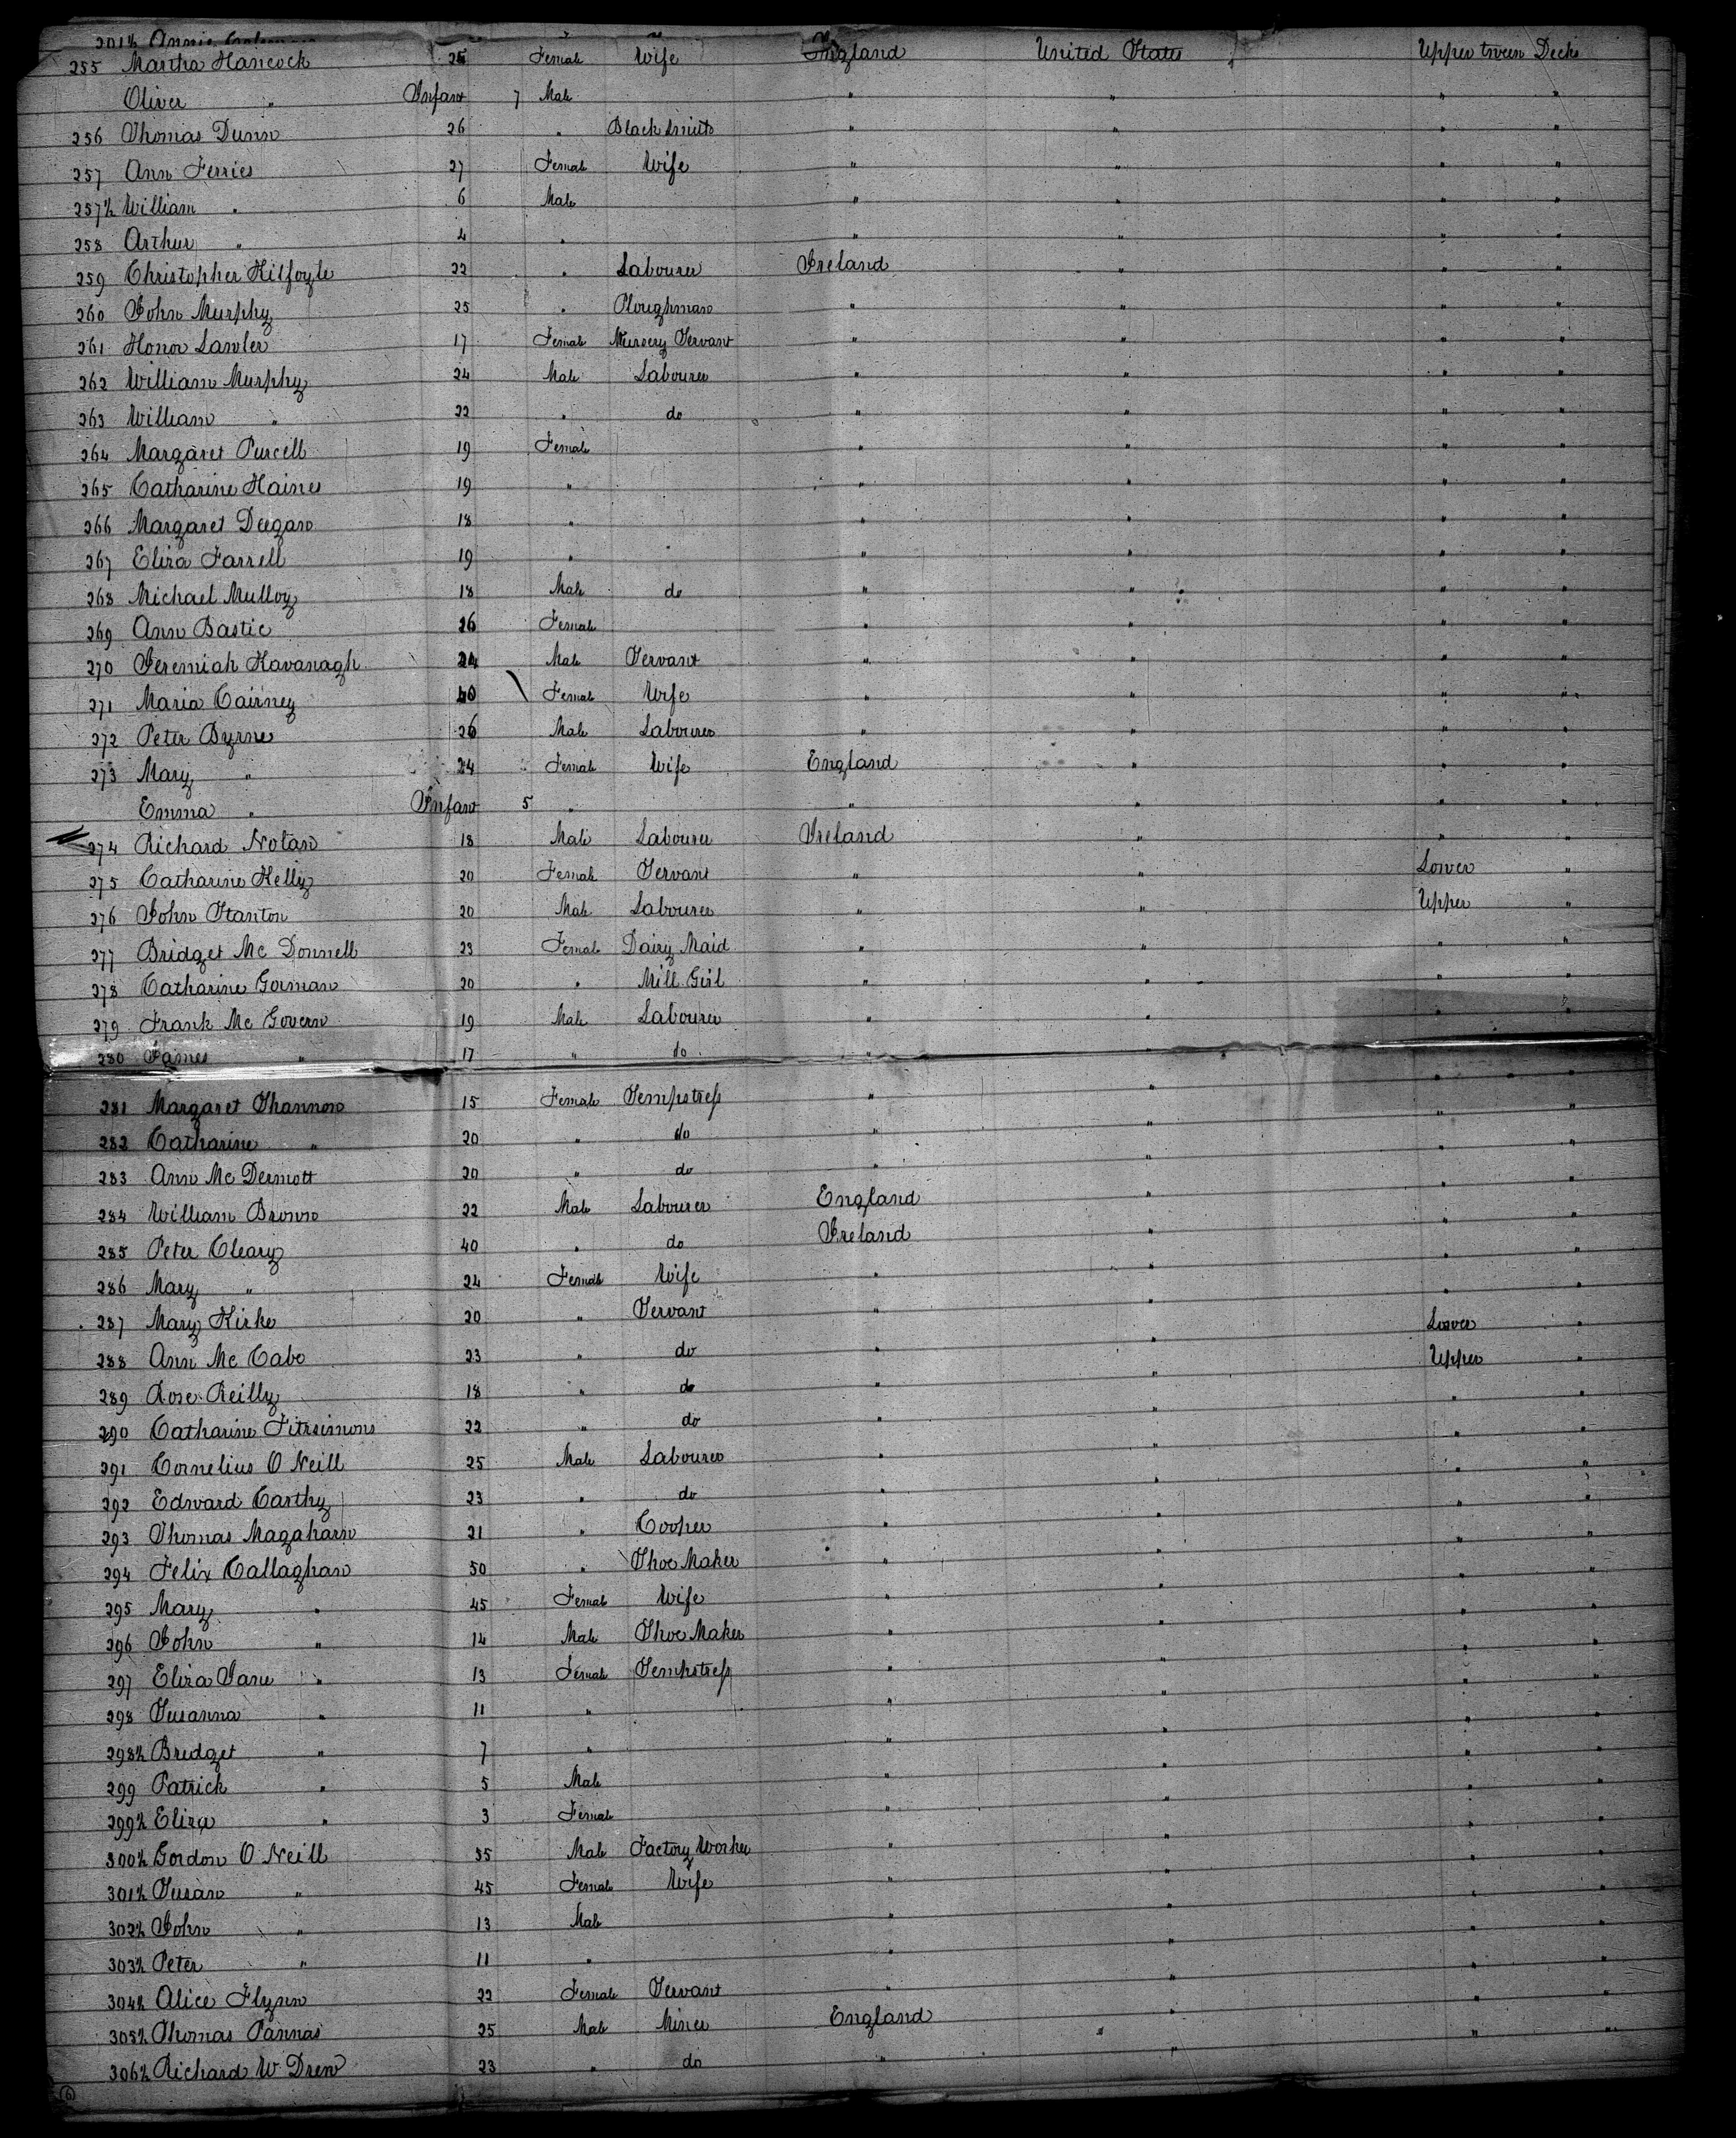 201½ Annie
255 Martha Hancock 25 Female Wife England United States Upper tween Decks
Oliver " Infant 7 Male " " " "
256 Thomas Dunn 26 " Blacksmith " " " "
257 Ann Ferries 27 Female Wife " " " "
257½ William " 6 Male " " " "
258 Arthur " 4 " " " " "
259 Christopher Kilfoyle 22 " Labourer Ireland " " "
260 John Murphy 25 " Ploughman " " " "
261 Honor Lawler 17 Female Nursery Servant " " " "
262 William Murphy 24 Male Labourer " " " "
263 William " 22 " do " " " "
264 Margaret Purcell 19 Female " " " "
265 Catharine Haines 19 " " " " "
266 Margaret Deegan 18 " " " " "
267 Eliza Farrell 19 " " " " "
268 Michael Mulloy 18 Male do " " " "
269 Ann Bastic 26 Female " " " "
270 Jeremiah Kavanagh 24 Male Servant " " " "
271 Maria Cairney 40 \ Female Wife " " " "
272 Peter Byrne 26 Male Labourer " " " "
273 Mary " 24 Female Wife England " " "
Emma " Infant 5 " " " " "
274 Richard Nolan 18 Male Labourer Ireland " " "
275 Catharine Kelly 20 Female Servant " " Lower "
276 John Stanton 20 Male Labourer " " Upper "
277 Bridget Mc Donnell 23 Female Dairy Maid " " " "
278 Catharine Gorman 20 " Mill Girl " " " "
279 Frank Mc Govern 19 Male Labourer " " " "
280 James " 17 " do " " " "
281 Margaret Shannon 15 Female Sempstress " " " "
282 Catharine " 20 " do " " " "
283 Ann Mc Dermott 20 " do " " " "
284 William Brown 22 Male Labourer England " " "
285 Peter Cleary 40 " do Ireland " " "
286 Mary " 24 Female Wife " " " "
287 Mary Kirke 20 " Servant " " Lower "
288 Ann Mc Cabe 23 " do " " Upper "
289 Rose Reilly 18 " do " " " "
290 Catharine Fitzsimons 22 " do " " " "
291 Cornelius O Neill 25 Male Labourer " " " "
292 Edward Carthy 23 " do " " " "
293 Thomas Magaharn 21 " Cooper " " " "
294 Felix Callaghan 50 " Shoe Maker " " " "
295 Mary " 45 Female Wife " " " "
296 John " 14 Male Shoe Maker " " " "
297 Eliza Jane " 13 Female Sempstress " " " "
298 Susanna " 11 " " " " "
298½ Bridget " 7 " " " " "
299 Patrick " 5 Male " " " "
299½ Eliza " 3 Female " " " "
300½ Gordon O Neill 35 Male Factory Worker " " " "
301½ Susan " 45 Female Wife " " " "
302½ John " 13 Male " " " "
303½ Peter " 11 " " " " "
304½ Alice Flynn 22 Female Servant " " " "
305½ Thomas Pannas 25 Male Miner England " " "
306½ Richard W Drew 23 " do " "
6